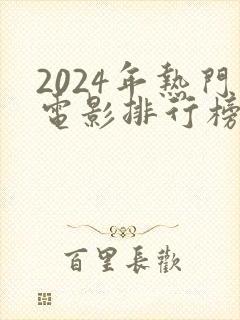 2024年熱門
電影排行榜
百里長歡